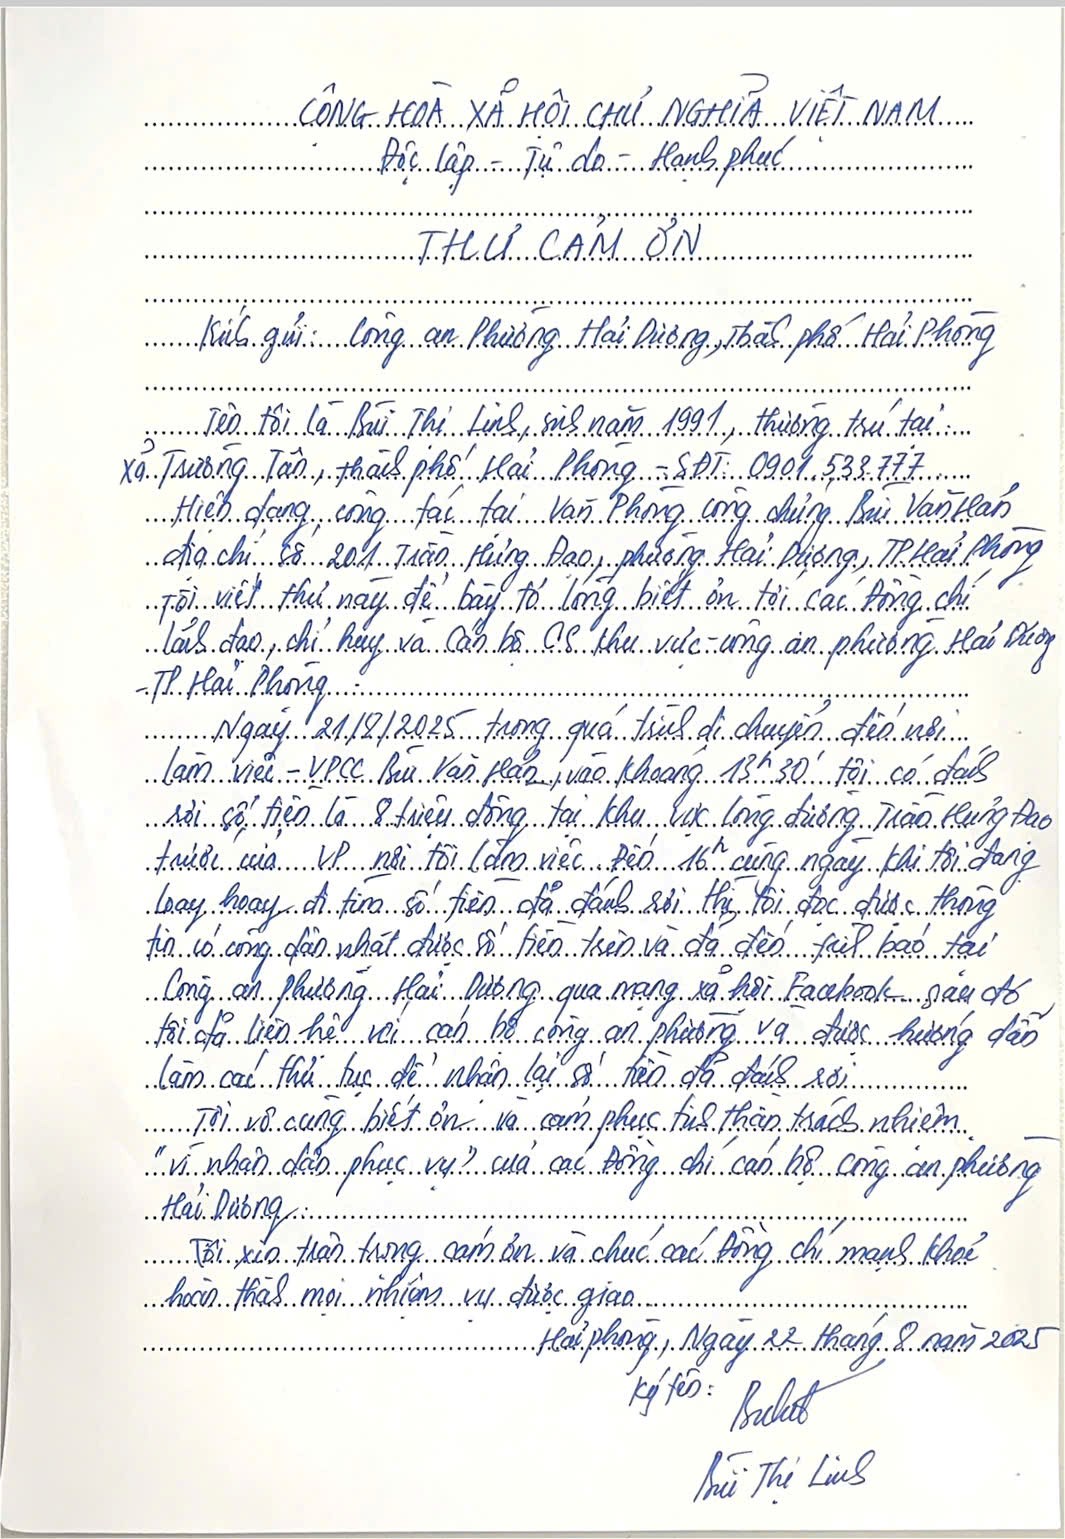 CÔNG HOÀ XÃ HỘI CHỦ NGHĨA VIỆT NAM
Độc lập - Tự do - Hạnh phúc
THƯ CẢM ƠN
Kính gửi: Công an Phường Hải Dương, Thành phố Hải Phòng
Tên tôi là Bùi Thị Linh, sinh năm 1991, thường trú tại:
xã Trường Tân, thành phố Hải Phòng - SĐT: 0901.533.777
Hiện đang công tác tại Văn Phòng công chứng Bùi Văn Hán
địa chỉ số 201 Trần Hưng Đạo, phường Hải Dương, TP Hải Phòng
Tôi viết thư này để bày tỏ lòng biết ơn tới các Đồng chí
lãnh đạo, chỉ huy và Cán bộ CS khu vực - công an phường Hải Dương
- TP Hải Phòng.
Ngày 21/8/2025 trong quá trình di chuyển đến nơi
làm việc - VPCC Bùi Văn Hán, vào khoảng 13h30' tôi có đánh
rơi số tiền là 8 triệu đồng tại khu vực lòng đường Trần Hưng Đạo
trước cửa VP nơi tôi làm việc. Đến 16h cùng ngày khi tôi đang
loay hoay đi tìm số tiền đã đánh rơi thì tôi đọc được thông
tin có công dân nhặt được số tiền trên và đã đến trình báo tại
Công an phường Hải Dương qua mạng xã hội Facebook sau đó
tôi đã liên hệ với cán bộ công an phường và được hướng dẫn
làm các thủ tục để nhận lại số tiền đã đánh rơi.
Tôi vô cùng biết ơn và cảm phục tinh thần trách nhiệm
"vì nhân dân phục vụ" của các Đồng chí cán bộ công an phường
Hải Dương.
Tôi xin trân trọng cảm ơn và chúc các Đồng chí mạnh khoẻ
hoàn thành mọi nhiệm vụ được giao.
Hải phòng, Ngày 22 tháng 8 năm 2025
Ký tên:
Bùi Thị Linh